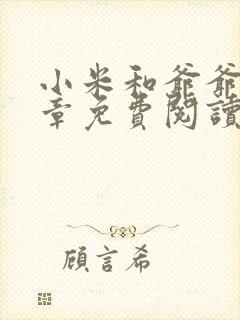 小米和爺爺
章免費閱讀
顧言希